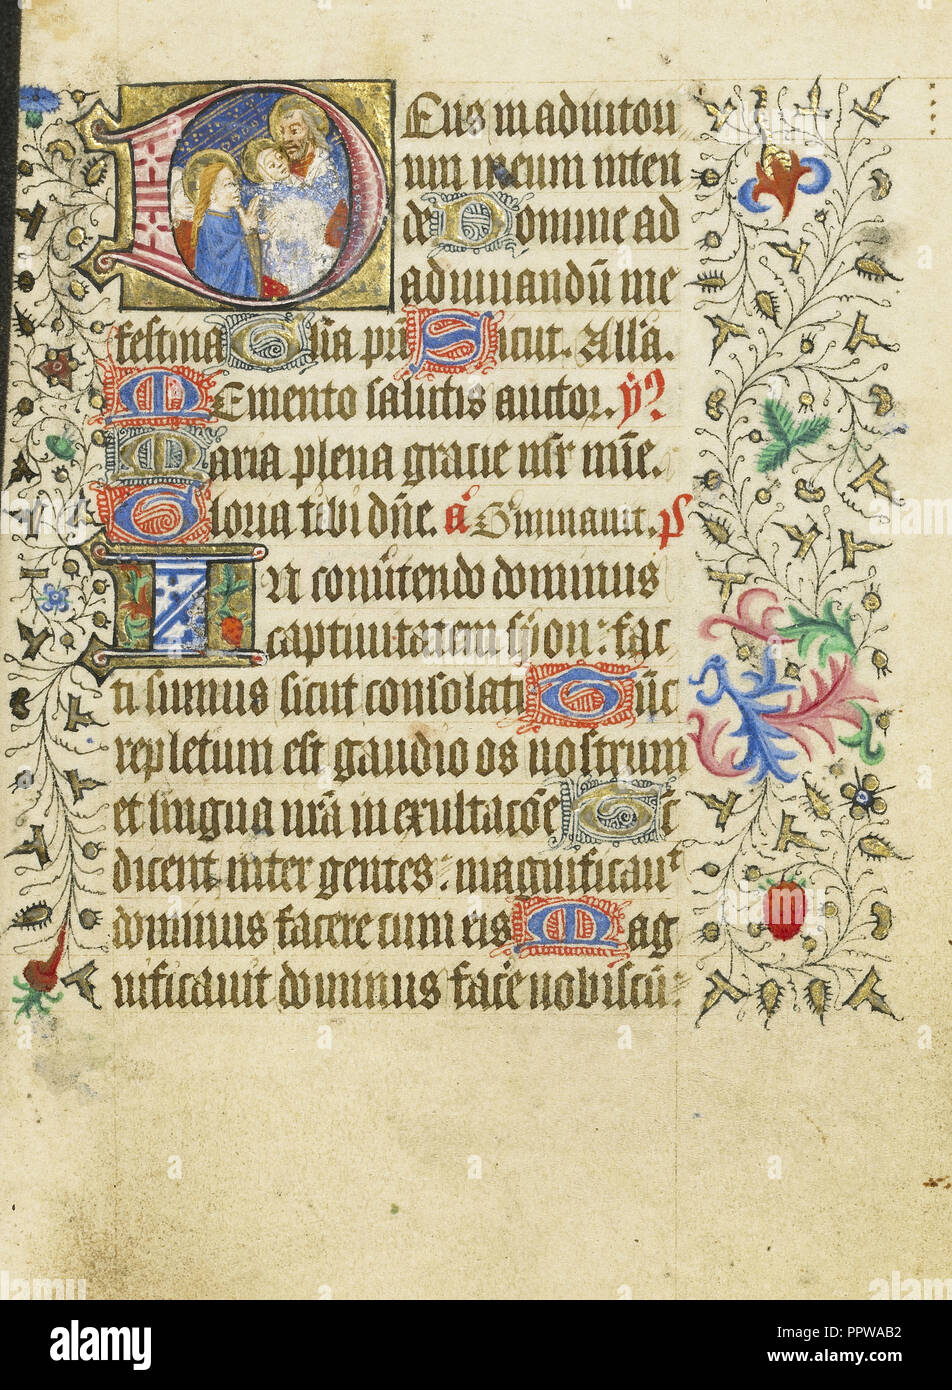 Deus in adiutori
um meum inten
de Domine ad
adiuuandū me
festina Glīa pr̄i Sicut. Allā.
Memento salutis auctor. ym̄
Maria plena gracie mr̄ mīe.
Gloria tibi dn̄e. a Germinauit. ps
In conūtendo dominus
captiuitatem syon: fac
ti sumus sicut consolati Tūc
repletum est gaudio os nostrum
et lingua nr̄a in exultacōe Tūc
dicent inter gentes: magnificauit
dominus facere cum eis Mag
nificauit dominus face nobiscū:
alamy
Image ID: PPWAB2
www.alamy.com